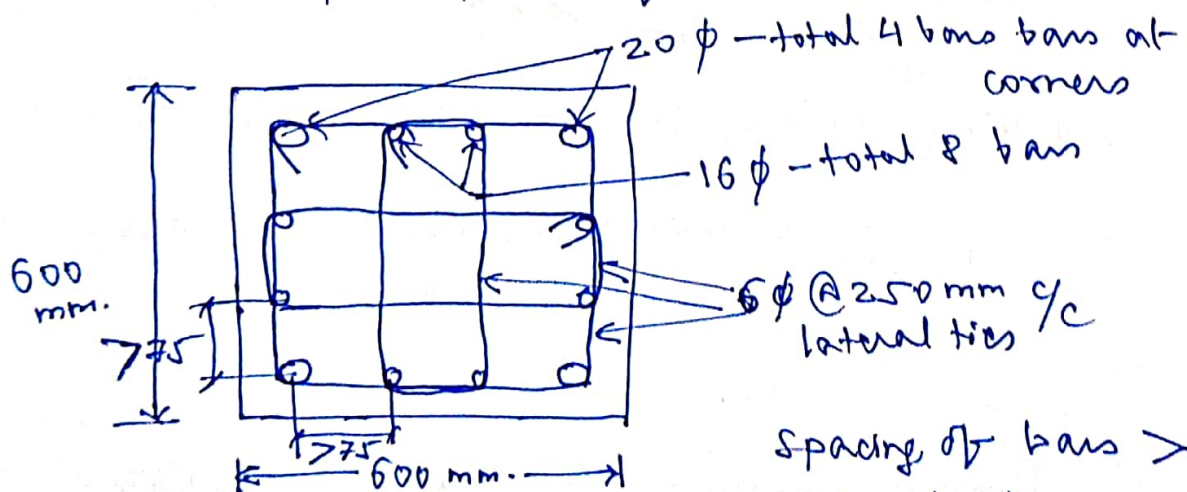 20 φ - total 4 bars bars at
corners
16 φ - total 8 bars
600
mm.
6 φ @ 250 mm c/c
lateral ties
>75
>75
600 mm.
Spacing of bars >